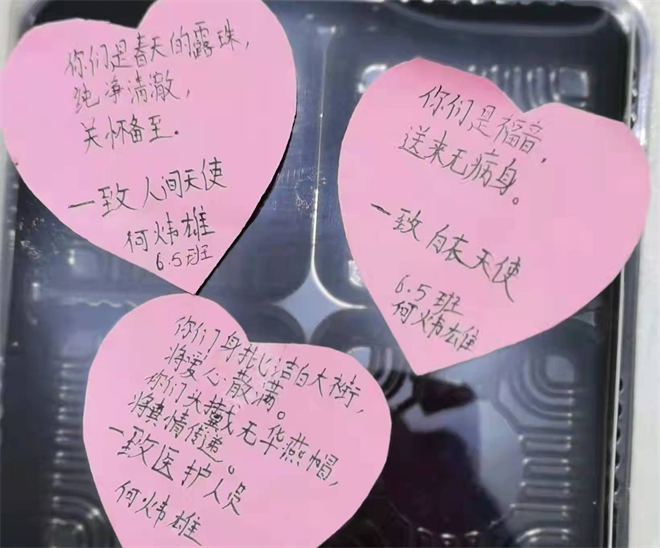 你们是春天的露珠,
纯净清澈,
关怀备至.
一致人间天使
何炜雄
6.5班
你们是福音,
送来无病身。
一致白衣天使
6.5班
何炜雄
你们身批洁白大衫,
将爱心散满。
你们头戴无华燕帽,
将真情传递。
一致医护人员
何炜雄